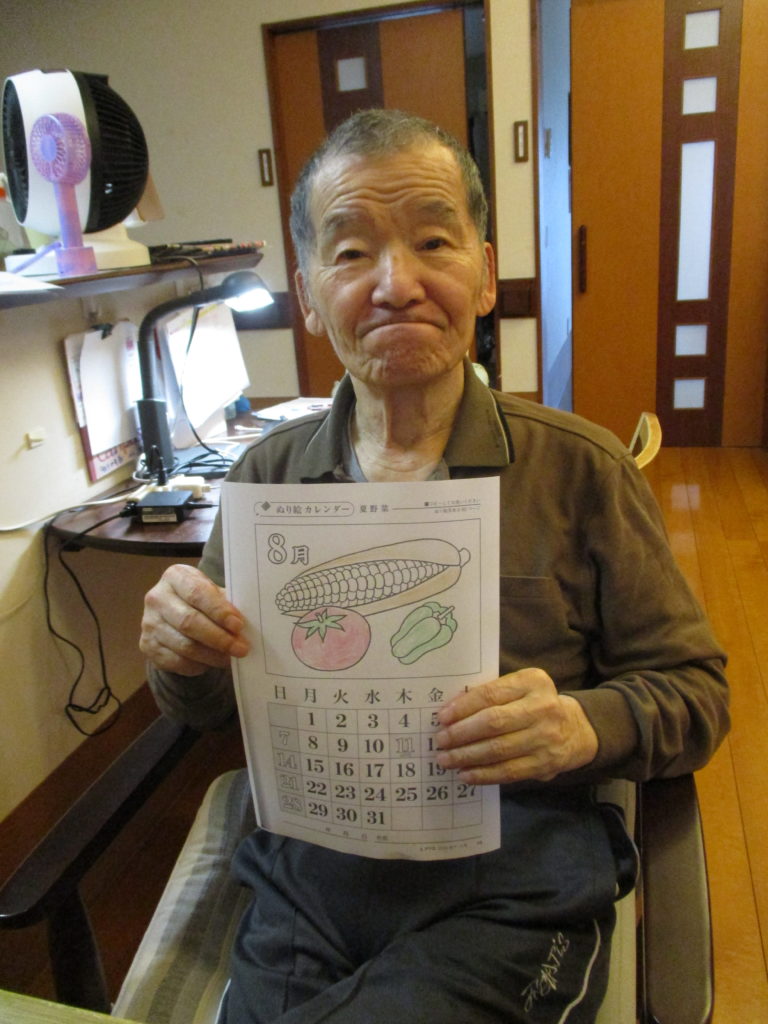 ぬり絵カレンダー 夏野菜
8月
日 月 火 水 木 金
1 2 3 4 5
7 8 9 10 11 12
14 15 16 17 18 19
21 22 23 24 25 26 27
28 29 30 31